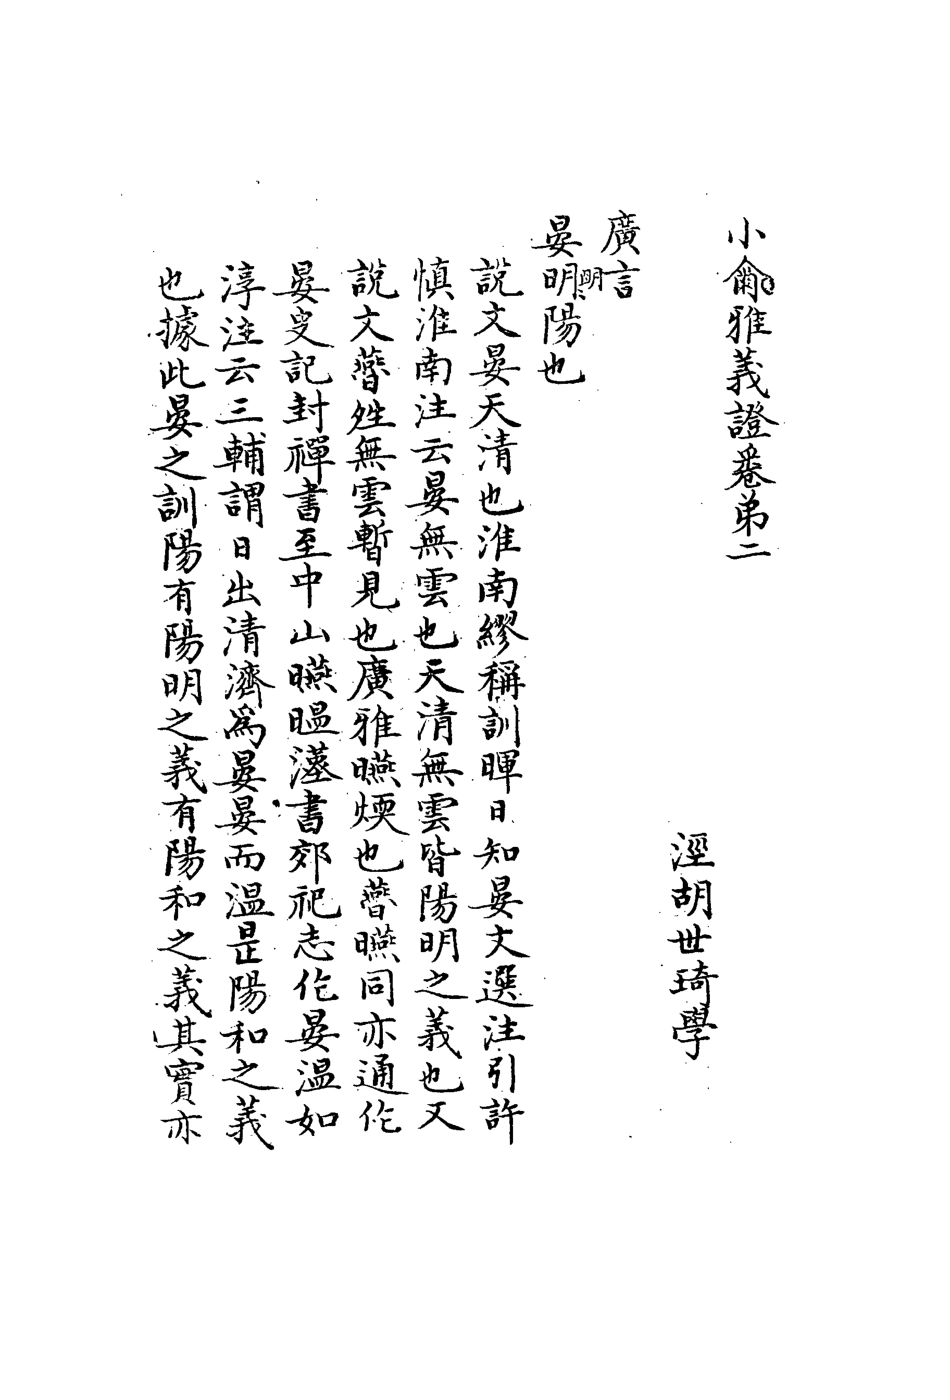 小爾雅義證卷弟二
涇胡世琦學
廣言
晏明陽也
明
說文晏天清也淮南繆稱訓暉日知晏文選注引許
慎淮南注云晏無雲也天清無雲皆陽明之義也又
說文㬫姓無雲暫見也廣雅曣㬉也㬫曣同亦通作
晏史記封禪書至中山曣㬈漢書郊祀志作晏溫如
淳注云三輔謂日出清濟為晏晏而溫是陽和之義
也據此晏之訓陽有陽明之義有陽和之義其實亦